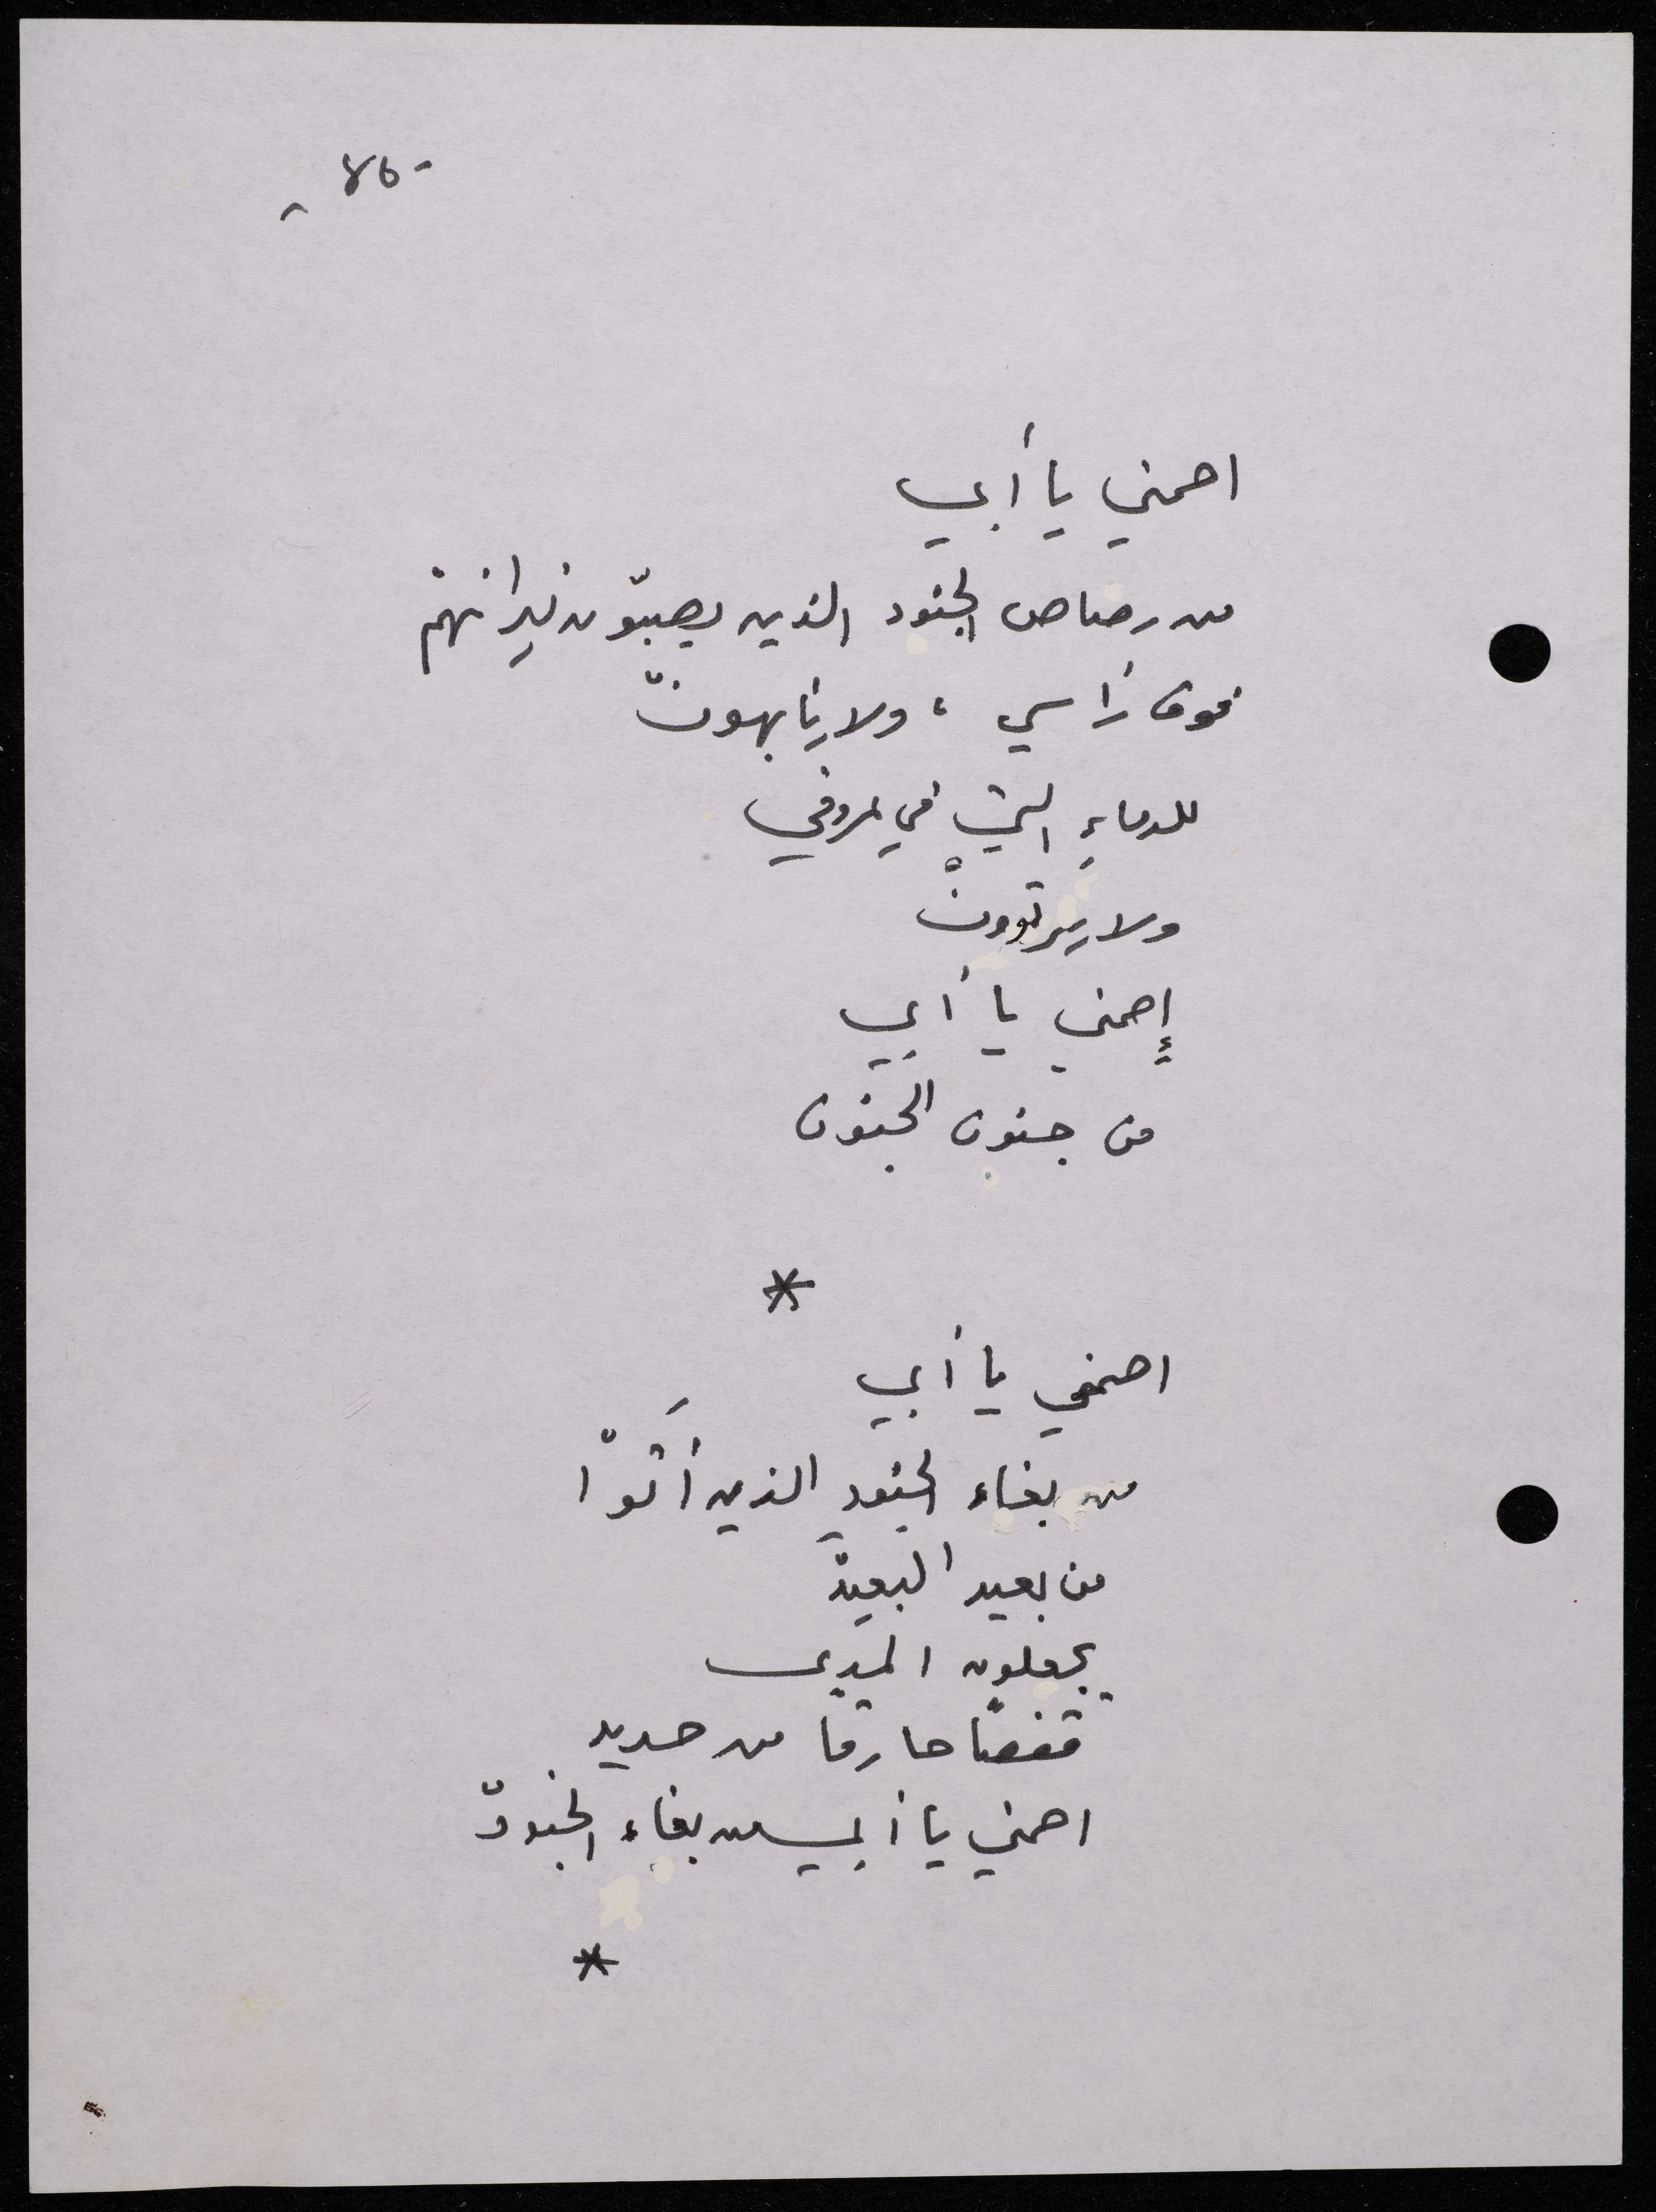 - 86 -
احمني يا أبي
من رصاص الجنود الذين يصبّون نيرانهم
فوق رأسي ، ولا يأبهونْ
للدماءِ التي في عروقي
ولا يرتوونْ
إحمني يا أبي
من جنون الجنون
*
احمني يا أبي
من بغاء الجنودِ الذين أتَوْا
من بعيد البعيدْ
يجعلون المدى
قفصًا حارقًا من حديد
احمني يا أبي من بغاء الجنودْ
*